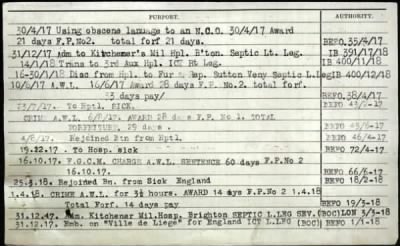 PURPORT. AUTHORITY.
30/4/17 Using obscene lanuage to an N.C.O. 30/4/17 Award
21 days F.P.No2. total forf 21 days. BEFO.35/4/17
31/12/17 Adm to Kitchener's Mil Hpl. B'ton. Septic Lt. Leg. IB 396/12/17
14/1/18 Trans to 3rd Aux Hpl. ICT Rt Leg. IB 400/11/18
16-30/1/18 Disc from Hpl. to Fur & Rep. Sutton Veny Septic L.Leg IB 400/12/18
10/6/17 A.W.L. 16/6/17 Award 28 days F.P. No.2. total forf.
33 days pay/ BEFO.38/4/17
23/7/17. To Hptl. SICK. BEFO 43/2-17
CRIME A.W.L. 6/8/17. AWARD 28 days F.P. No 1. TOTAL
FORFEITURE, 29 days. BEFO 43/6-17
4/8/17. Rejoined Btn from Hptl. BEFO 46/4-17
19.12.17 To Hosp. sick BEFO 72/4-17
16.10.17. F.G.C.M. CHARGE A.W.L. SENTENCE 60 days F.P.No 2
16.10.17. BEFO 66/6-17
25.3.18. Rejoined Bn. from Sick England BEFO 18/2-18
1.4.18. CRIME AWL. for 3½ hours. AWARD 14 days F.P No 2 1.4.18
Total Forf. 14 days Pay BEFO 19/3-18
31.12.17. Adm. Kitchener Mil.Hosp. Brighton SEPTIC L.LEG SEV.(BOC)LON 5/3-18
31.12.17. Emb. on "Ville de Liege" for England ICT L.LEG (BOC) BEFO 1/1-18